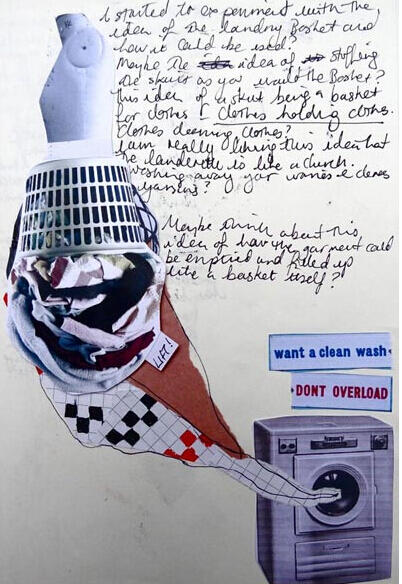 I started to experiment with the
idea of the landry Basket and
how it could be used?
Maybe the idea of stuffing
the skirt as you would the Basket?
this idea of a skirt being a basket
for clothes / clothes holding clothes.
Clothes cleaning clothes?
I am really liking this idea that
the landerette is like a church.
washing away your worries &
Maybe think about this
idea of how the garment could
be emptied and filled up
like a basket itself?
LIFT!
want a clean wash
DONT OVERLOAD